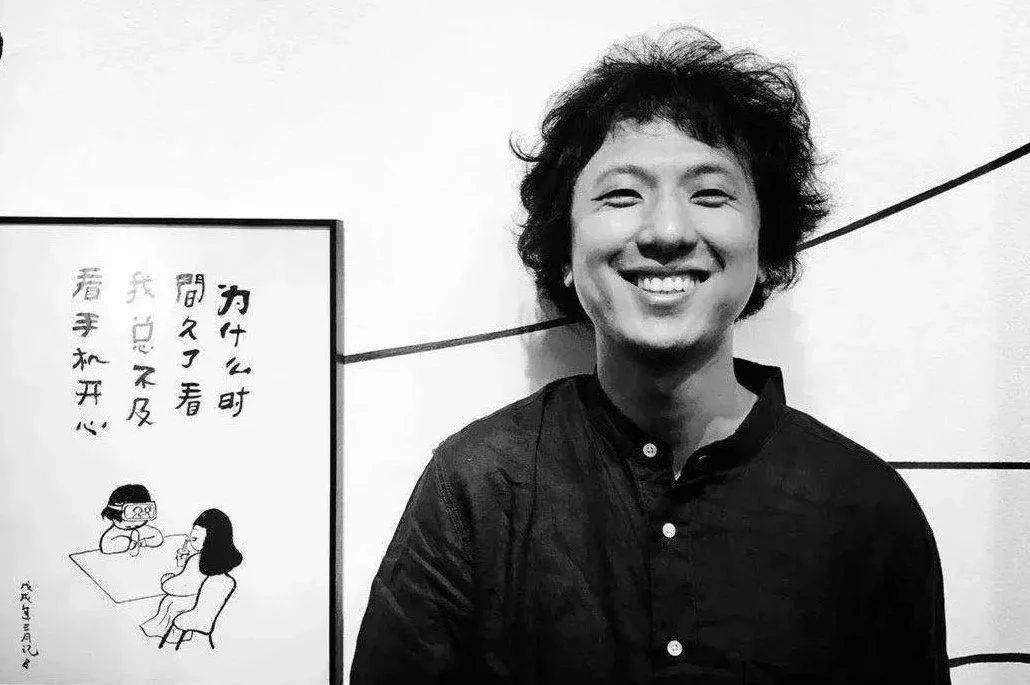 为什么时
間久了看
我总不及
看手机开心
戊戌年三月记